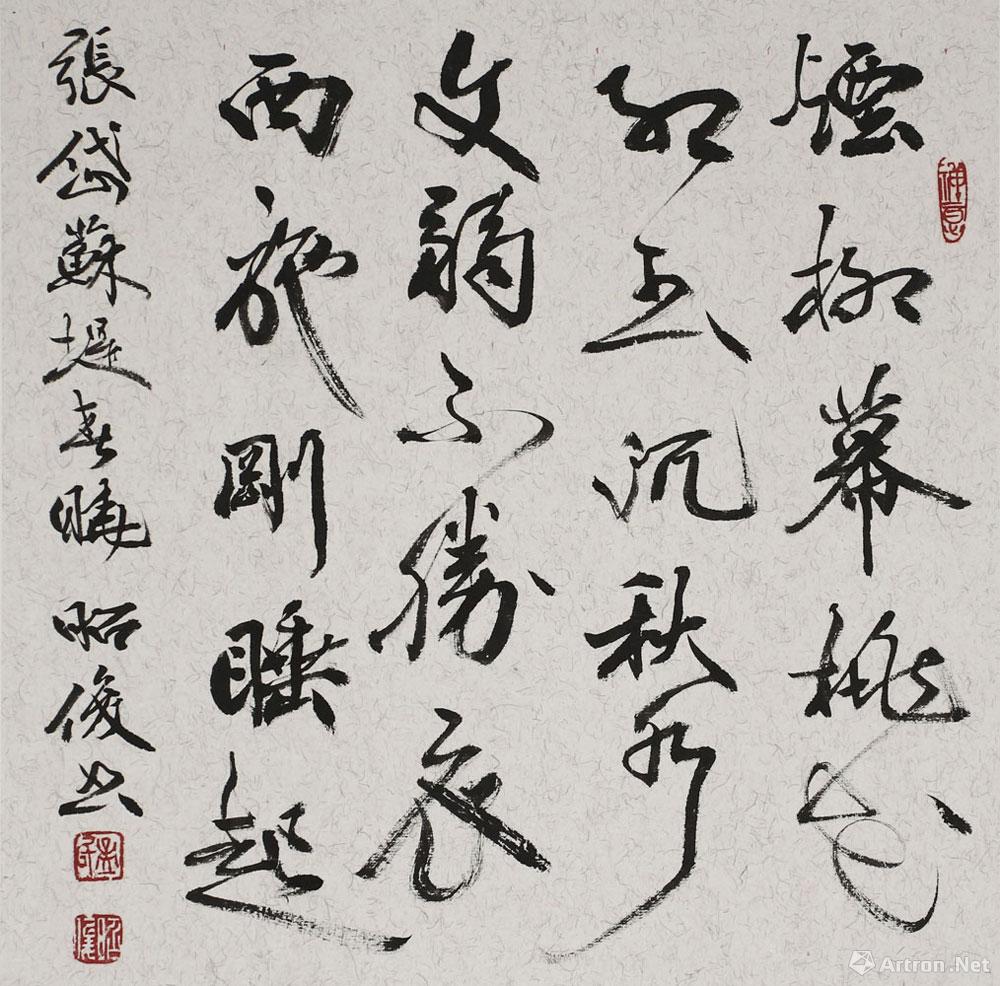 煙柳幕桃花
紅玉沉秋水
文弱不勝衣
西施剛睡起
張岱蘇堤春曉 昭俊書
Artron.Net